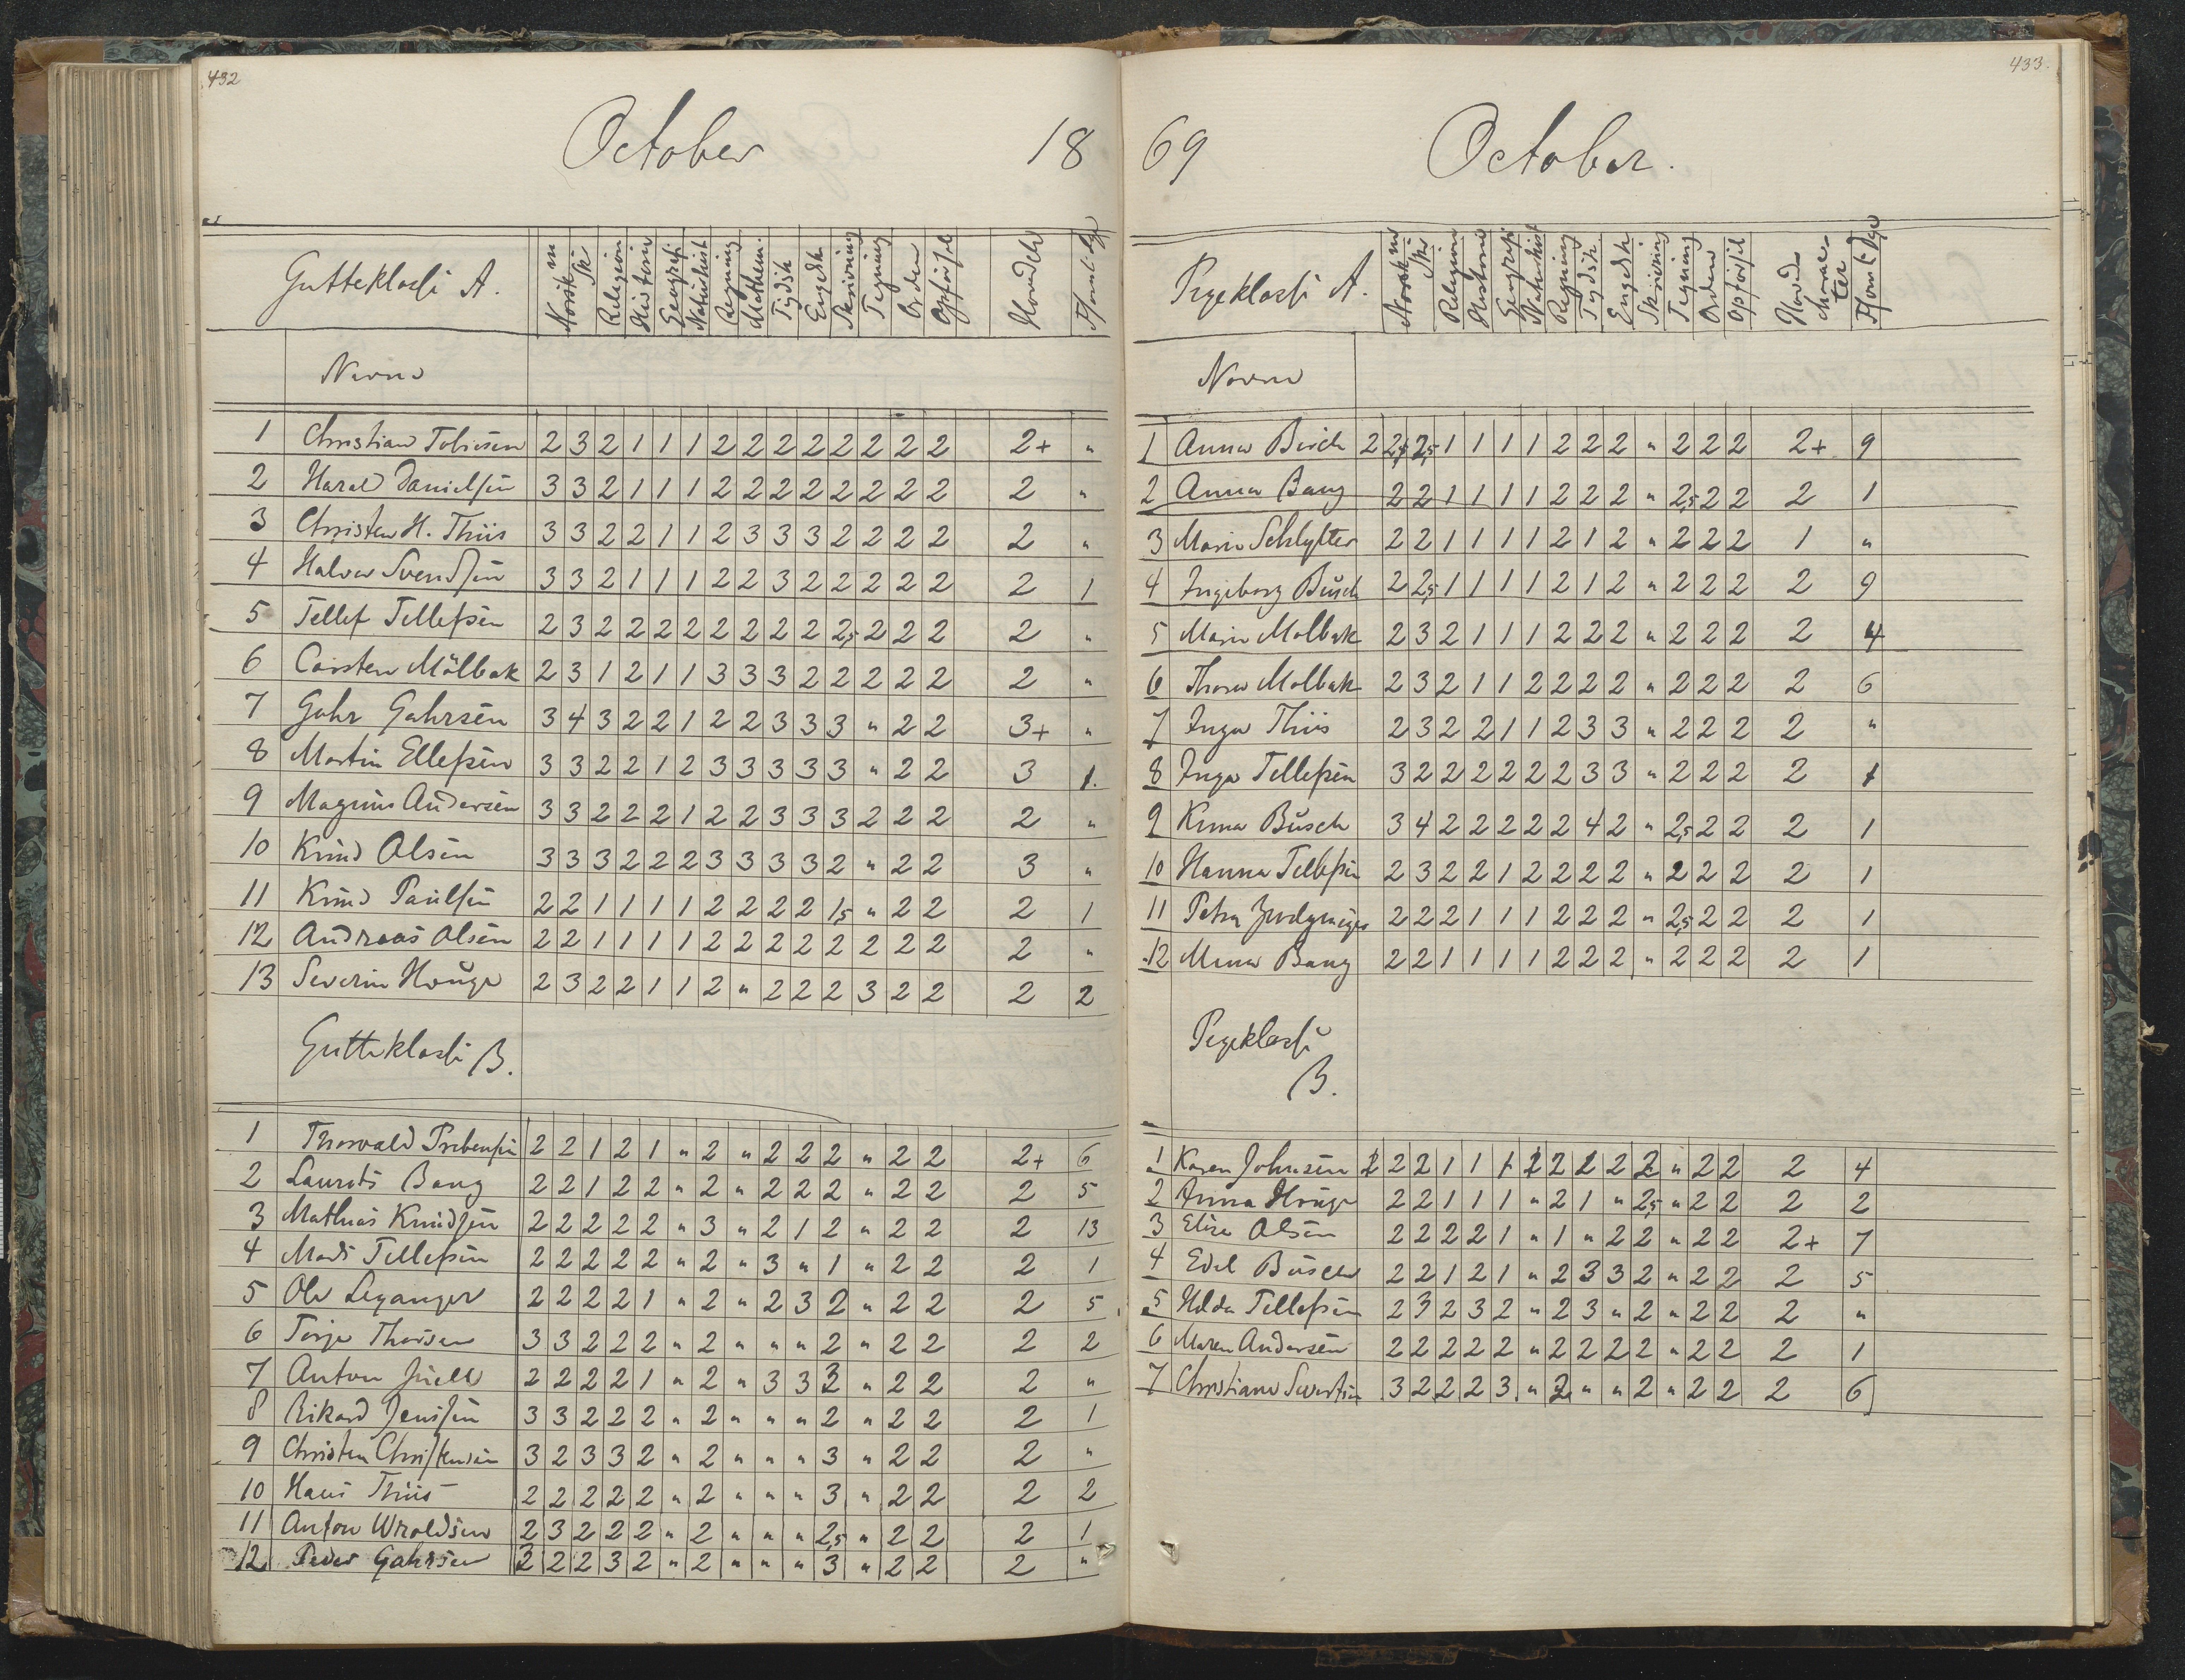 432
October 18
Gutteklasse A. Norsk m Sk Religion Historie Geografi Naturhist Regning Mathem. Tydsk Engelsk Skrivning Tegning Orden Opførsel Hovedch Forsml. Dge
Navne
1 Christian Tobiesen 2 3 2 1 1 1 2 2 2 2 2 2 2 2 2+ "
2 Harald Danielsen 3 3 2 1 1 1 2 2 2 2 2 2 2 2 2 "
3 Christen H. Thiis 3 3 2 2 1 1 2 3 3 3 2 2 2 2 2 "
4 Halvor Svendsen 3 3 2 1 1 1 2 2 3 2 2 2 2 2 2 1
5 Tellef Tellefsen 2 3 2 2 2 2 2 2 2 2 2,5 2 2 2 2 "
6 Carsten Mölbak 2 3 1 2 1 1 3 3 3 2 2 2 2 2 2 "
7 Gahr Gahrsen 3 4 3 2 2 1 2 2 3 3 3 " 2 2 3+ "
8 Martin Ellefsen 3 3 2 2 1 2 3 3 3 3 3 " 2 2 3 1.
9 Magnus Andersen 3 3 2 2 2 1 2 2 3 3 3 2 2 2 2 "
10 Knud Olsen 3 3 3 2 2 2 3 3 3 3 2 " 2 2 3 "
11 Knud Paulsen 2 2 1 1 1 1 2 2 2 2 1,5 " 2 2 2 1
12 Andreas Olsen 2 2 1 1 1 1 2 2 2 2 2 2 2 2 2 "
13 Severin Houge 2 3 2 2 1 1 2 " 2 2 2 3 2 2 2 2
Gutteklasse B.
1 Thorvald Prebensen 2 2 1 2 1 " 2 " 2 2 2 " 2 2 2+ 6
2 Laurits Bang 2 2 1 2 2 " 2 " 2 2 2 " 2 2 2 5
3 Mathias Knudsen 2 2 2 2 2 " 3 " 2 1 2 " 2 2 2 13
4 Mads Tellefsen 2 2 2 2 2 " 2 " 3 " 1 " 2 2 2 1
5 Ole Leganger 2 2 2 2 1 " 2 " 2 3 2 " 2 2 2 5
6 Torje Thorsen 3 3 2 2 2 " 2 " " " 2 " 2 2 2 2
7 Anton Juell 2 2 2 2 1 " 2 " 3 3 3 " 2 2 2 "
8 Rikard Jensen 3 3 2 2 2 " 2 " " " 2 " 2 2 2 1
9 Christen Christensen 3 2 3 3 2 " 2 " " " 3 " 2 2 2 "
10 Hans Thiis 2 2 2 2 2 " 2 " " " 3 " 2 2 2 2
11 Anton Wroldsen 2 3 2 2 2 " 2 " " " 2,5 " 2 2 2 1
12 Peder Gahrsen 3 2 2 3 2 " 2 " " " 3 " 2 2 2 "
433.
69 October.
Pigeklasse A. Norsk m Skr Religion Historie Geografi Naturhist Regning Tydsk Engelsk Skrivning Tegning Orden Opførsel Hovedcharakter Forsmt. Dge
Navne
1 Anna Birch 2 2,5 2,5 1 1 1 1 2 2 2 " 2 2 2 2+ 9
2 Anna Bang 2 2 1 1 1 1 2 2 2 " 2,5 2 2 2 1
3 Marie Schlytter 2 2 1 1 1 1 2 1 2 " 2 2 2 1 "
4 Ingeborg Busch 2 2,5 1 1 1 1 2 1 2 " 2 2 2 2 9
5 Marie Molbak 2 3 2 1 1 1 2 2 2 " 2 2 2 2 4
6 Thora Molbak 2 3 2 1 1 2 2 2 2 " 2 2 2 2 6
7 Inga Thiis 2 3 2 2 1 1 2 3 3 " 2 2 2 2 "
8 Inga Tellefsen 3 2 2 2 2 2 2 3 3 " 2 2 2 2 1
9 Kima Busch 3 4 2 2 2 2 2 4 2 " 2,5 2 2 2 1
10 Hanna Tellefsen 2 3 2 2 1 2 2 2 2 " 2 2 2 2 1
11 Petra 2 2 2 1 1 1 2 2 2 " 2,5 2 2 2 1
12 Mina Bang 2 2 1 1 1 1 2 2 2 " 2 2 2 2 1
Pigeklasse
B.
1 Karen Johnsen 2 2 2 1 1 1 2 2 2 2 2 " 2 2 2 4
2 Anna Houge 2 2 1 1 1 " 2 1 " 2,5 " 2 2 2 2
3 Elise Olsen 2 2 2 2 1 " 1 " 2 2 " 2 2 2+ 7
4 Edel Busch 2 2 1 2 1 " 2 3 3 2 " 2 2 2 5
5 Hilda Tellefsen 2 3 2 3 2 " 2 3 " 2 " 2 2 2 "
6 Maren Andersen 2 2 2 2 2 " 2 2 2 2 " 2 2 2 1
7 Christiane 3 2 2 2 3 " 2 " " 2 " 2 2 2 6